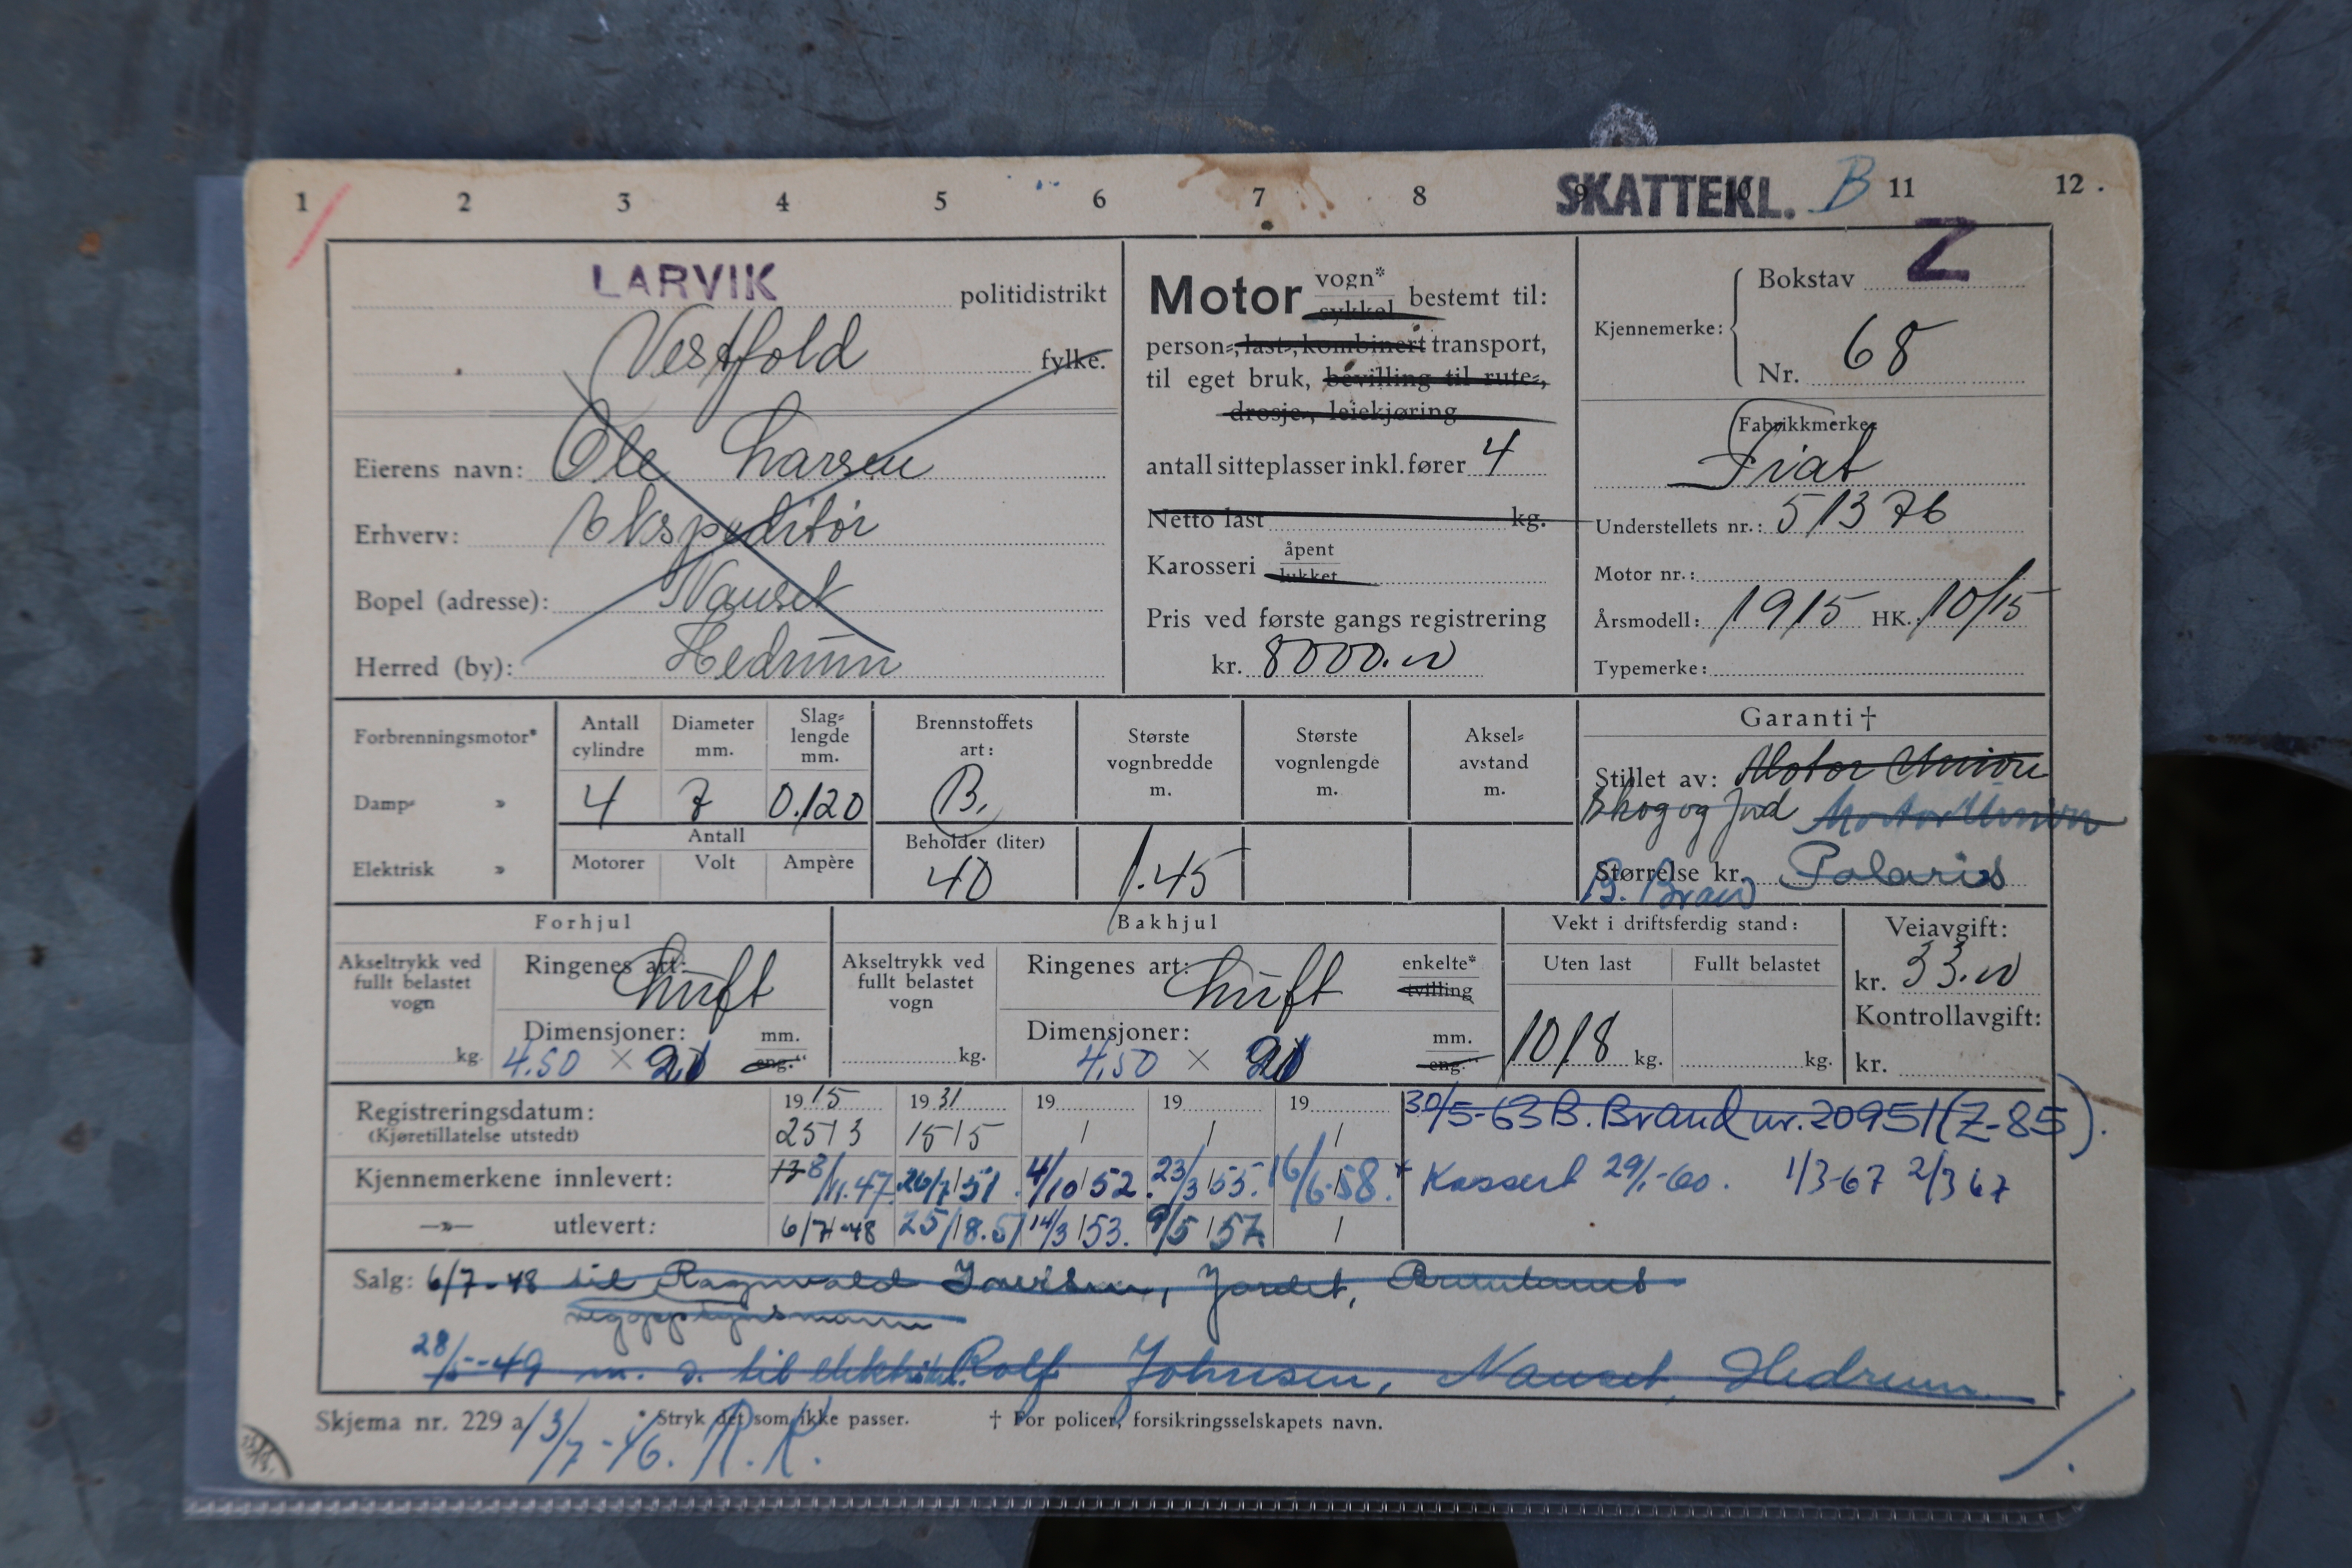 1 2 3 4 5 6 7 8 9 10 11 12
SKATTEKL. B
LARVIK politidistrikt
Vestfold fylke.
Eierens navn: Ole Larsen
Erhverv: Ekspeditør
Bopel (adresse): Nauset
Herred (by): Hedrum
Motor vogn* sykkel bestemt til:
person-, last-, kombinert transport,
til eget bruk, bevilling til rute-,
drosje-, leiekjøring
antall sitteplasser inkl. fører 4
Netto last kg.
Karosseri åpent lukket
Pris ved første gangs registrering
kr. 8000.00
Kjennemerke: Bokstav Z
Nr. 68
Fabrikkmerke:
Fiat
Understellets nr.: 51376
Motor nr.:
Årsmodell: 1915 HK. 10/15
Typemerke:
Forbrenningsmotor*
Damp- »
Elektrisk »
Antall cylindre
4
Diameter mm.
7
Slaglengde mm.
0.120
Antall
Motorer Volt Ampère
Brennstoffets art:
B.
Beholder (liter)
40
Største vognbredde m.
1.45
Største vognlengde m.
Akselavstand m.
Garanti †
Stillet av: Motor Union
Skog og Jord Motor Union
Størrelse kr. Polaris
B. Brand
Forhjul
Akseltrykk ved fullt belastet vogn
kg.
Ringenes art: Luft
Dimensjoner: mm. eng.“
4.50 × 21
Bakhjul
Akseltrykk ved fullt belastet vogn
kg.
Ringenes art: Luft enkelte* tvilling
Dimensjoner: mm. eng.“
4.50 × 21
Vekt i driftsferdig stand:
Uten last Fullt belastet
1018 kg. kg.
Veiavgift:
kr. 33.00
Kontrollavgift:
kr.
Registreringsdatum: 1915 1931 19 19 19
(Kjøretillatelse utstedt) 25/3 15/5 / / /
30/5-63 B. Brand nr. 20951 (Z-85).
Kjennemerkene innlevert: 8/11.47. 26/7 51. 4/10 52. 23/3 55. 16/6-58.
Kassert 29/1-60. 1/3-67 2/3 67
—»— utlevert: 6/7-48 25/8.51 14/3 53. 9/5 57. /
Salg: 6/7-48 til Ragnvald Jordet,
28/5-49 m. v. til Rolf Johnsen, Nauset, Hedrum.
Skjema nr. 229 a
* Stryk det som ikke passer. † For policer, forsikringsselskapets navn.
R.K.